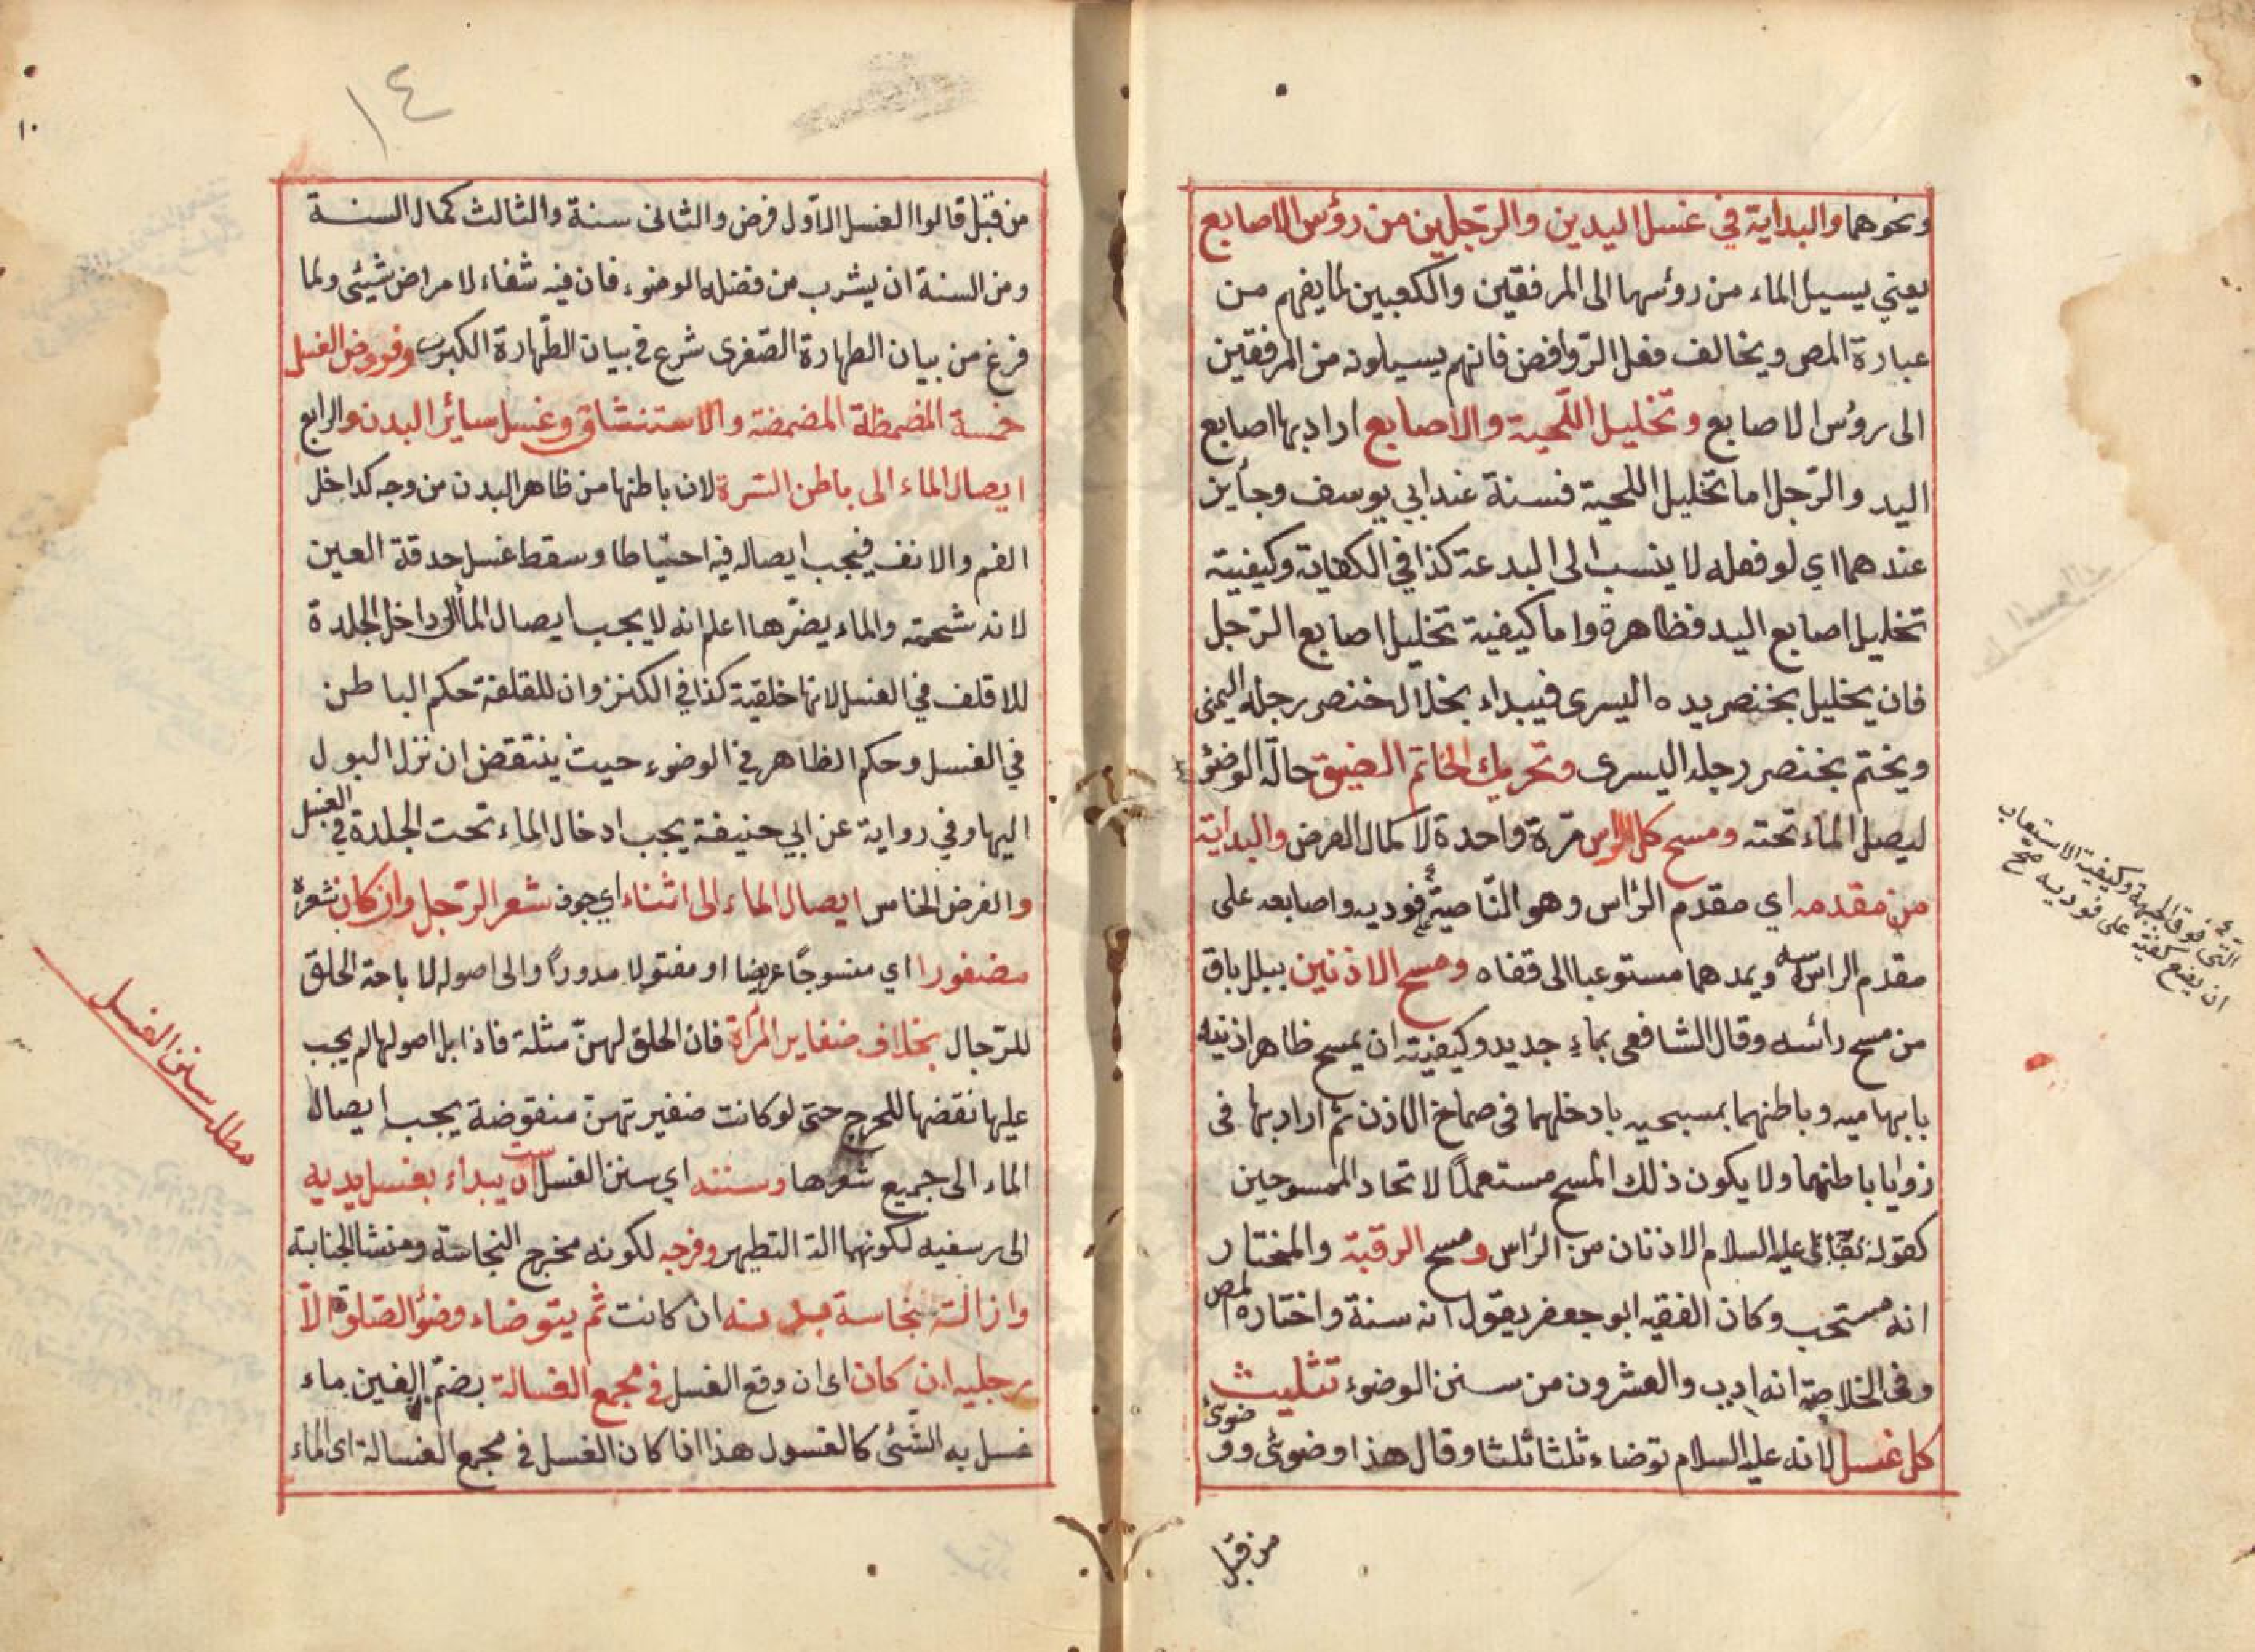 ونحوهما والبداية في غسل اليدين والرجلين من رؤس الاصابع
يعني يسيل الماء من رؤسها الى المرفقين والكعبين لما يفهم من
عبارة المص ويخالف فعل الروافض فانهم يسيلونه من المرفقين
الى رؤس الاصابع وتخليل اللحية والاصابع اراد بها اصابع
اليد والرجل اما تخليل اللحية فسنة عند ابي يوسف وجأيز
عندهما اي لو فعله لا ينسب الى البدعة كذا في الكفاية وكيفيته
تخليل اصابع اليد فظاهرة واما كيفية تخليل اصابع الرجل
فان يخليل بخنصر يده اليسرى فيبداء بخلال خنصر رجله اليمنى
ويختم بخنصر رجله اليسرى وتحريك الخاتم الضيق حالة الوضؤ
ليصل الماء تحته ومسح كل الراس مرة واحدة لاكمال الفرض والبداية
من مقدمه اي مقدم الرأس وهو الناصية فوديه واصابعه على
مقدم الراس ويمدهما مستوعبا الى قفاه ومسح الاذنين ببلل باق
من مسح رائسه وقال الشافعي بماء جديد وكيفيته ان يمسح ظاهر اذنيه
بابهاميه وباطنهما بمسبحيه بادخلهما فى صماخ الاذن ثم ارادبها فى
زوايا باطنهما ولا يكون ذلك المسح مستعملا لاتحاد الممسوحين
كقوله عليه السلام الاذنان من الرأس ومسح الرقبة والمختار
انه مستحب وكان الفقيه ابو جعفر يقول انه سنة واختاره المص
وفى الخلاصة انه ادب والعشرون من سنن الوضوء تثليث
كل غسل لانه عليه السلام توضاء ثلثا ثلثا وقال هذا وضوئى وو
ضوئ
من قبل
التى فوق الجبهة وكيفية الاستيعاب
ان يضع كفيه على فوديه صح
١٤
١٠
من قبل قالوا الغسل الاول فرض والثانى سنة والثالث كمال السنة
ومن السنة ان يشرب من فضل الوضوء فان فيه شفاء لامراض شيئى ولما
فرغ من بيان الطهارة الصغرى شرع في بيان الطهارة الكبرى وفروض الغسل
خمسة المضمظة المضمضة والاستنشاق وغسل سائر البدن والرابع
ايصال الماء الى باطن السرة لان باطنها من ظاهر البدن من وجه كداخل
الفم والانف فيجب ايصاله فيه احتياطا وسقط غسل حدقة العين
لانه شحمة والماء يضرها اعلم انه لا يجب ايصال الماء الى داخل الجلدة
للاقلف في الغسل لانها خلقية كذا في الكنز وان للقلفة حكم الباطن
في الغسل وحكم الظاهر في الوضوء حيث ينتقض ان نزل البول
اليها وفي رواية عن ابي حنيفة يجب ادخال الماء تحت الجلدة في الغسل
والفرض الخامس ايصال الماء الى اثناء اي جوف شعر الرجل وان كان شعره
مضفورا اي منسوجا عريضا او مفتولا مدورا والى اصوله لاباحة الحلق
للرجال بخلاف ضفاير المرأة فان الحلق لهن مثلة فاذا بل اصولها لم يجب
عليها نقضها للحرج حتى لو كانت ضفيرتهن منقوضة يجب ايصال
الماء الى جميع شعرها وسننه اي سنن الغسل ست ان يبداء بغسل يديه
الى رسغيه لكونهما الة التطهر وفرجه لكونه مخرج النجاسة ومنشا الجنابة
وازالة نجاسة بدنه ان كانت ثم يتوضاء وضؤ الصلوة الا
رجليه ان كان اى ان وقع الغسل في مجمع الغسالة بضم الغين ماء
غسل به الشئى كالغسول هذا اذا كان الغسل في مجمع الغسالة اى الماء
مطلب سنن الغسل